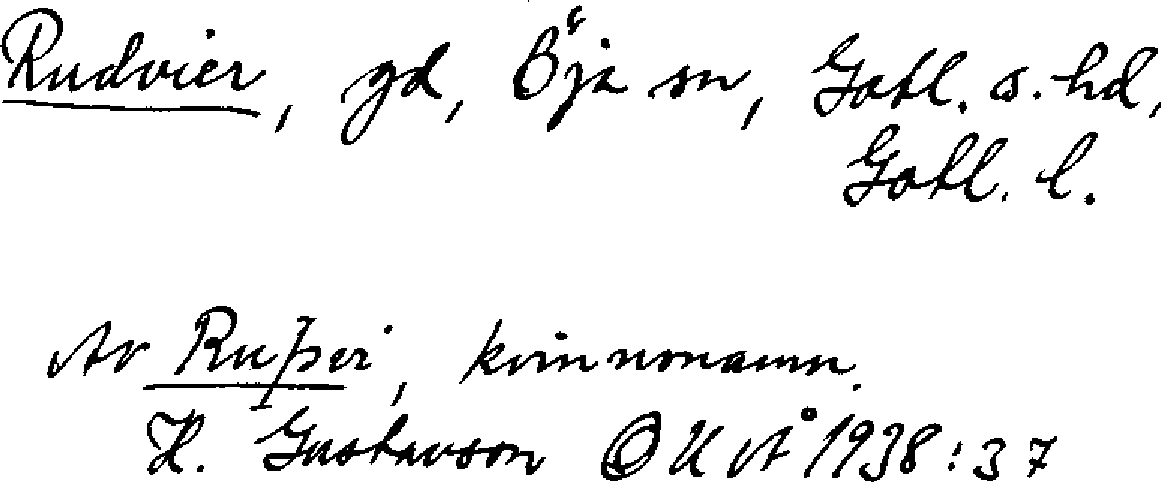 Rudvier, gd, Öja sn, Gotl. s. hd,
Gotl. l.
Av Ruþvi, kvinnonamn.
H. Gustavson OUÅ 1938:37